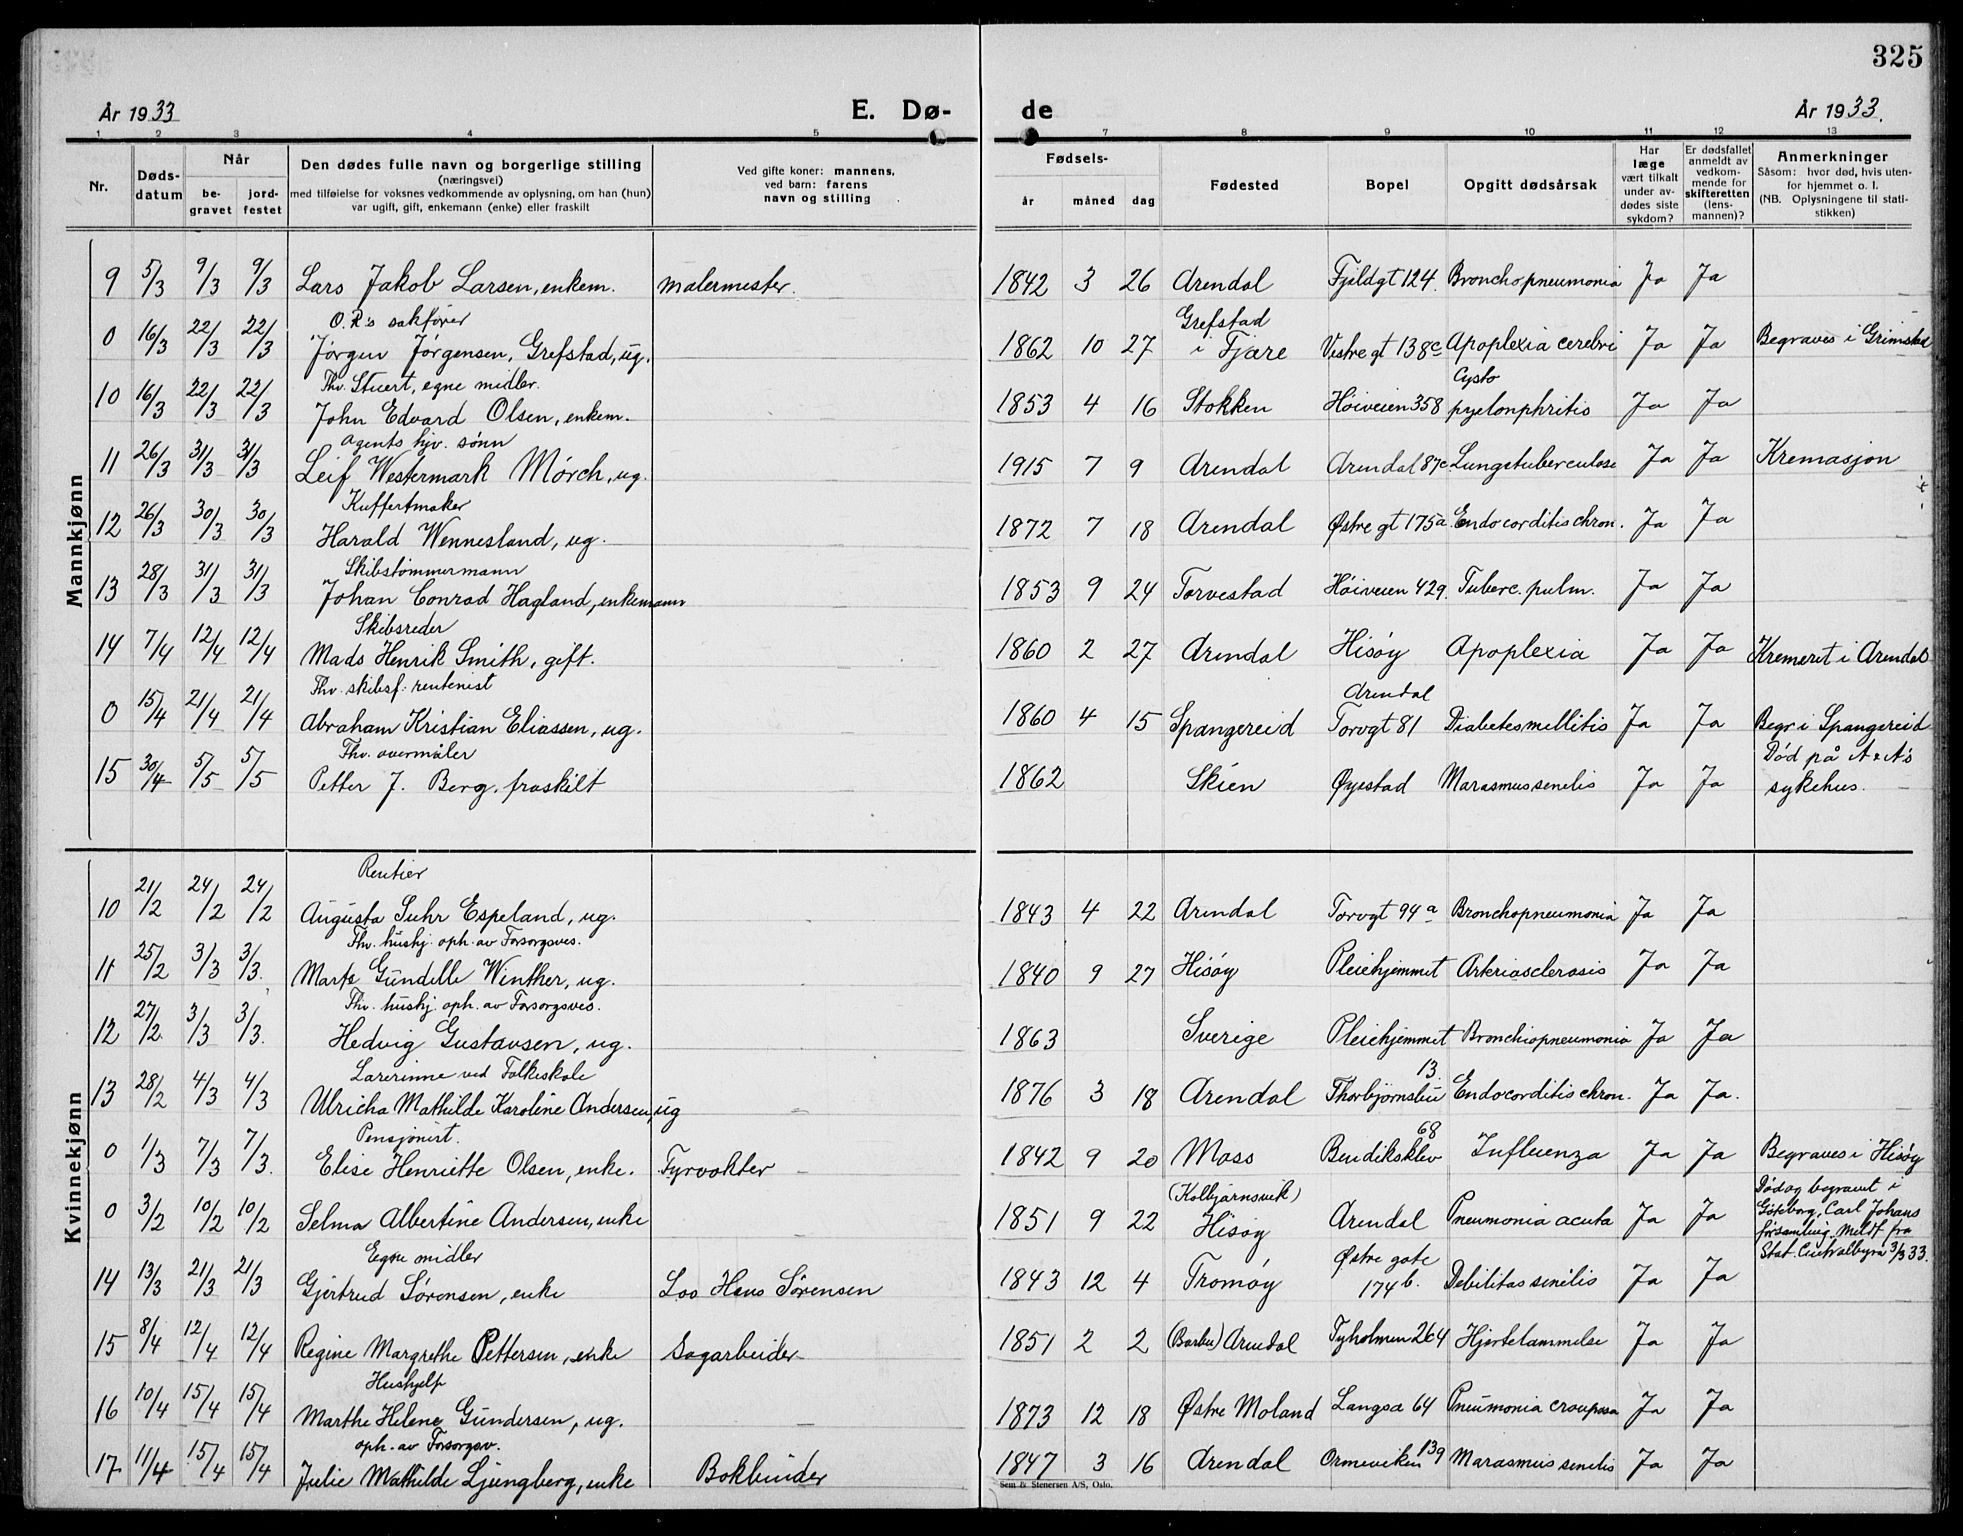 325
År 1933
E. Dø-
de
År 1933.
1 2 3 4 5 7 8 9 10 11 12 13
Nr.
Døds-
datum
Når
be-
gravet
jord-
festet
Den dødes fulle navn og borgerlige stilling
(næringsvei)
med tilføielse for voksnes vedkommende av oplysning, om han (hun)
var ugift, gift, enkemann (enke) eller fraskilt
Ved gifte koner: mannens,
ved barn: farens
navn og stilling
Fødsels-
år måned dag
Fødested
Bopel
Opgitt dødsårsak
Har
læge
vært tilkalt
under av-
dødes siste
sykdom?
Er dødsfallet
anmeldt av
vedkom-
mende for
skifteretten
(lens-
mannen)?
Anmerkninger
Såsom: hvor død, hvis uten-
for hjemmet o. l.
(NB. Oplysningene til stati-
stikken)
Mannkjønn
9 5/3 9/3 9/3 Lars Jakob Larsen, enkem. malermester. 1842 3 26 Arendal Fjeldgt 124. Bronchopneumonia Ja Ja
O.R's sakfører Grefstad
0 16/3 22/3 22/3 Jørgen Jørgensen, Grefstad, ug. 1862 10 27 i Fjære Vestre gt 138c Apoplexia cerebri Ja Ja Begraves i Grimstad
Thv. Stuert, egne midler. Cysto
10 16/3 22/3 22/3 John Edvard Olsen, enkem. 1853 4 16 Stokken Höiveien 358 pyelonphritis Ja Ja
Agents hjv. sønn
11 26/3 31/3 31/3 Leif Westermark Mörch, ug. 1915 7 9 Arendal Arendal 87c Lungetuberculose Ja Ja Kremasjon
Kuffertmaker
12 26/3 30/3 30/3 Harald Wennesland, ug. 1872 7 18 Arendal Østre gt 175a Endocorditis chron. Ja Ja
Skibstömmermann
13 28/3 31/3 31/3 Johan Conrad Hagland, enkemann 1853 9 24 Torvestad Höiveien 429. Tuberc. pulm. Ja Ja
Skibsreder
14 7/4 12/4 12/4 Mads Henrik Smith, gift. 1860 2 27 Arendal Hisöy Apoplexia Ja Ja Kremeret i Arendal
Thv. skibsf. rentenist Arendal
0 15/4 21/4 21/4 Abraham Kristian Eliassen, ug. 1860 4 15 Spangereid Torvgt 81 Diabetes mellitis Ja Ja Begr. i Spangereid
Thv. overmåler Död på A.A's
15 30/4 5/5 5/5 Petter J. Berg. fraskilt 1862 Skien Øyestad Marasmus senilis Ja Ja sykehus.
Kvinnekjønn
Rentier
10 21/2 24/2 24/2 Augusta Suhr Espeland, ug. 1843 4 22 Arendal Torvgt 94a Bronchopneumonia Ja Ja
Thv. hushj. oph. av Forsorgsves.
11 25/2 3/3 3/3. Marte Gundelle Winther, ug. 1840 9 27 Hisöy Pleiehjemmet Arteriasclerosis Ja Ja
Thv. hushj. oph. av Forsorgsves.
12 27/2 3/3 3/3. Hedvig Gustavsen, ug. 1863 Sverige Pleiehjemmet Bronchiopneumonia Ja Ja
Lærerinne ved Folkeskole 13.
13 28/2 4/3 4/3 Ulricha Mathilde Karoline Andersen, ug 1876 3 18 Arendal Thorbjörnsbu Endocorditis chron. Ja Ja.
Pensjonist. 68
0 1/3 7/3 7/3. Elise Henriette Olsen, enke. Fyrvokter 1842 9 20 Moss Bendiksklev Influenza Ja Ja Begraves i Hisöy
(Kolbjørnsvik) Död og begravet i
0 3/2 10/2 10/2 Selma Albertine Andersen, enke 1851 9 22 Hisöy Arendal Pneumonia acuta Ja Ja Göteborg, Carl Johans
församling. Meldt fra
Egne midler Østre gate Stat. Centralbyrå 3/3 33.
14 13/3 21/3 21/3 Gjertrud Sörensen, enke Los Hans Sörensen 1843 12 4 Tromöy 174 b. Debilitas senilis Ja Ja
15 8/4 12/4 12/4 Regine Margrethe Pettersen, enke Sagarbeider 1851 2 2 (Barbu) Arendal Tyholmen 264 Hjertelammelse Ja Ja
Hushjelp
16 10/4 15/4 15/4 Marthe Helene Gundersen, ug. 1873 12 18 Østre Moland Langsæ 64 Pneumonia crouposa Ja Ja
oph. av Forsorgsv.
17 11/4 15/4 15/4 Julie Mathilde Ljungberg, enke Bokbinder 1847 3 16 Arendal Ormeviken 139 Marasmus senilis Ja Ja
Sem & Stenersen A/S, Oslo.